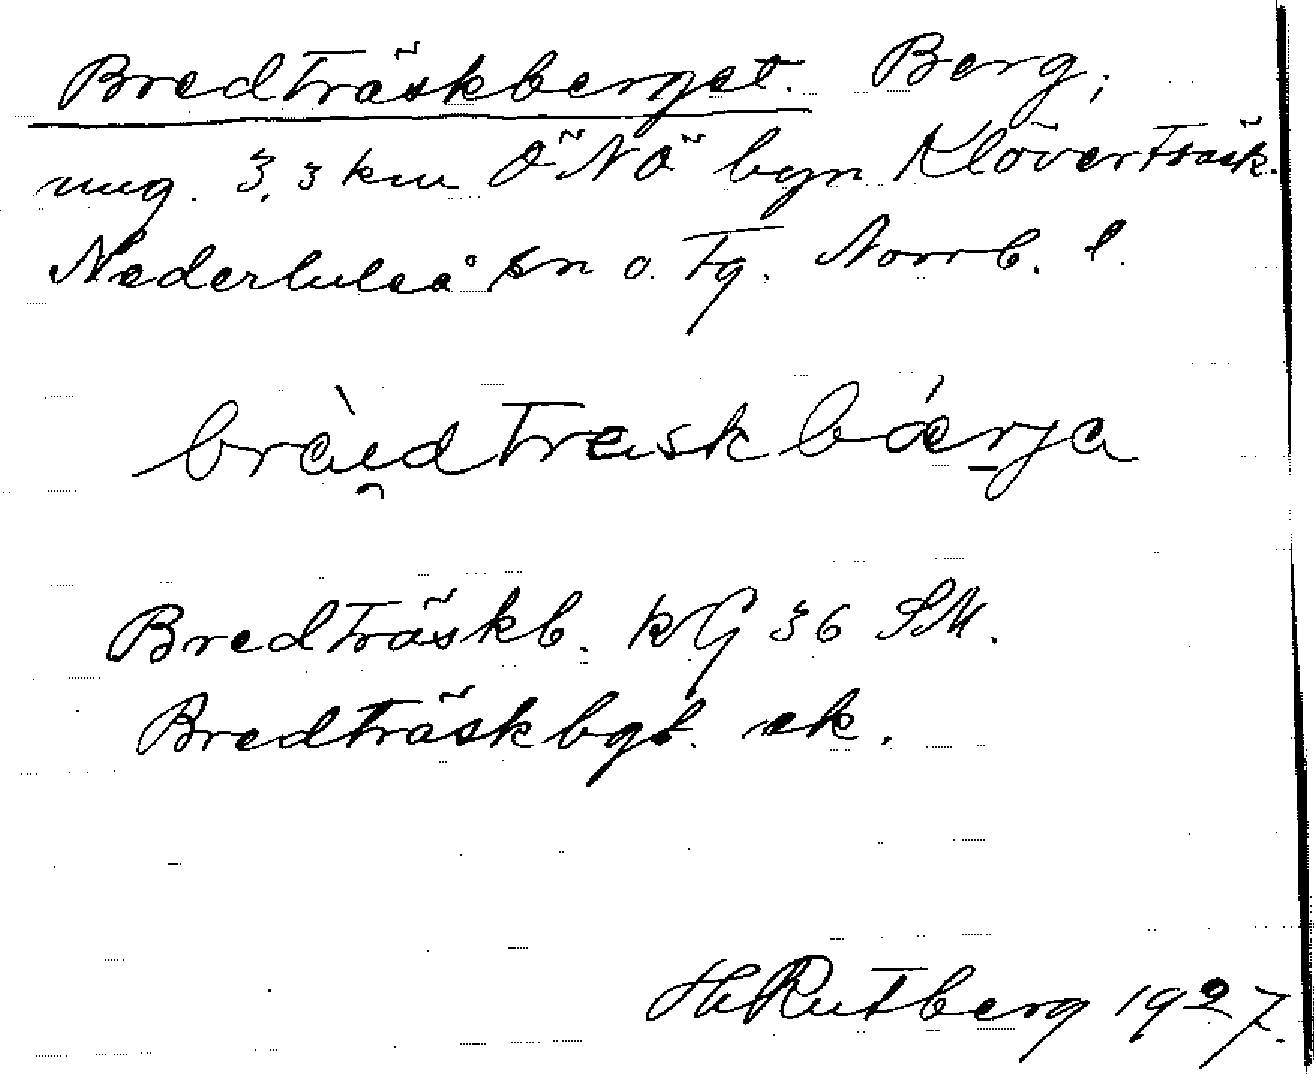 Bredträskberget. Berg,
ung. 3,3 km ÖNÖ byn Klöverträsk.
Nederluleå sn o. tg. Norrb. l.
bràid treskbǽrja
Bredträskb. kG 36 SM.
Bredträskbgt. ek.
H Rutberg 1927.